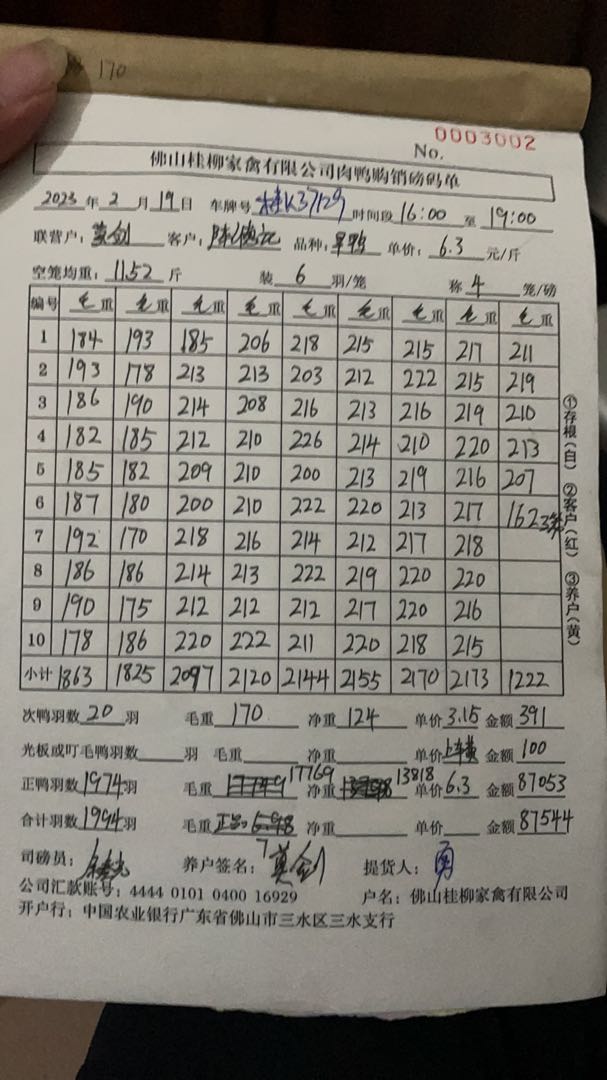 170
No. 0003002
佛山桂柳家禽有限公司肉鸭购销磅码单
2023年2月19日 车牌号 桂K37129 时间段 16:00 至 19:00
联营户: 莫剑 客户: 品种: 单价: 6.3 元/斤
空笼均重: 11.52 斤 装 6 羽/笼 称 4 笼/磅
编号 毛重 毛重 毛重 毛重 毛重 毛重 毛重 毛重 毛重
1 184 193 185 206 218 215 215 217 211
2 193 178 213 213 203 212 222 215 219
3 186 190 214 208 216 213 216 219 210
4 182 185 212 210 226 214 210 220 213
5 185 182 209 210 200 213 219 216 207
6 187 180 200 210 222 220 213 217 162 3笼
7 192 170 218 216 214 212 217 218
8 186 186 214 213 222 219 220 220
9 190 175 212 212 212 217 220 216
10 178 186 220 222 211 220 218 215
小计 1863 1825 2097 2120 2144 2155 2170 2173 1222
次鸭羽数 20 羽 毛重 170 净重 124 单价 3.15 金额 391
光板或叮毛鸭羽数 羽 毛重 净重 单价 金额 100
正鸭羽数 1974 羽 毛重 17769 净重 13818 单价 6.3 金额 87053
合计羽数 1994 羽 毛重 净重 单价 金额 87544
司磅员: 养户签名: 莫剑 提货人:
公司汇款账号: 4444 0101 0400 16929 户名: 佛山桂柳家禽有限公司
开户行: 中国农业银行广东省佛山市三水区三水支行
①存根(白) ②客户(红) ③养户(黄)